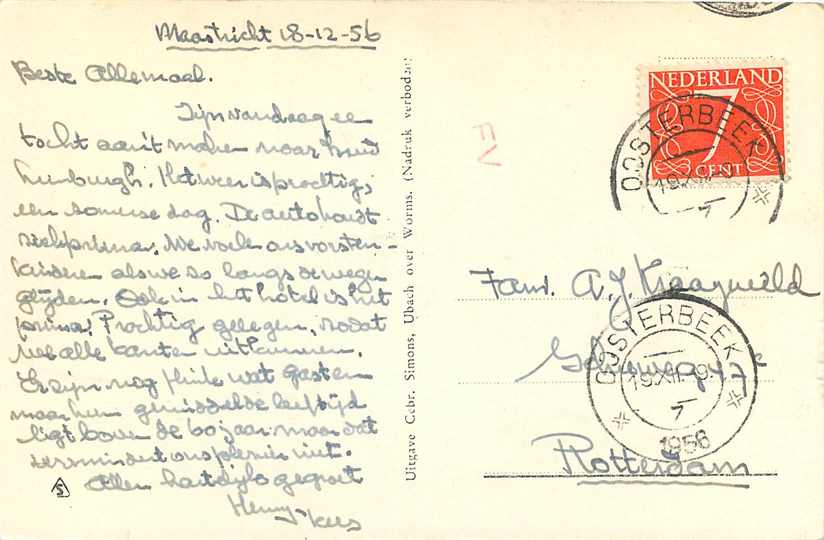 Maastricht 18-12-56
Beste Allemaal.
Zijn vandaag ee
tocht aan't maken naar Zuid
Limburgh. Het weer is prachtig,
een zomerse dag. De auto houdt
zich prima. We voelen ons vorsten-
kinderen als we zo langs de wegen
glijden. Ook in het hotel is het
prima. Prachtig gelegen, zodat
we alle kanten uitkunnen.
Er zijn nog flink wat gasten
maar hun gemiddelde leeftijd
ligt boven de 60 jaar maar dat
vermindert ons plezier niet.
Allen hartelijk gegroet
Henny-
Kees
S
Uitgave Gebr. Simons, Ubach over Worms. (Nadruk verboden)
FV
NEDERLAND
7
CENT
OOSTERBEEK
19.XII.-9.
7
Fam. A.J. Kraayeveld
OOSTERBEEK
19.XII.-9.
7
1956
Rotterdam